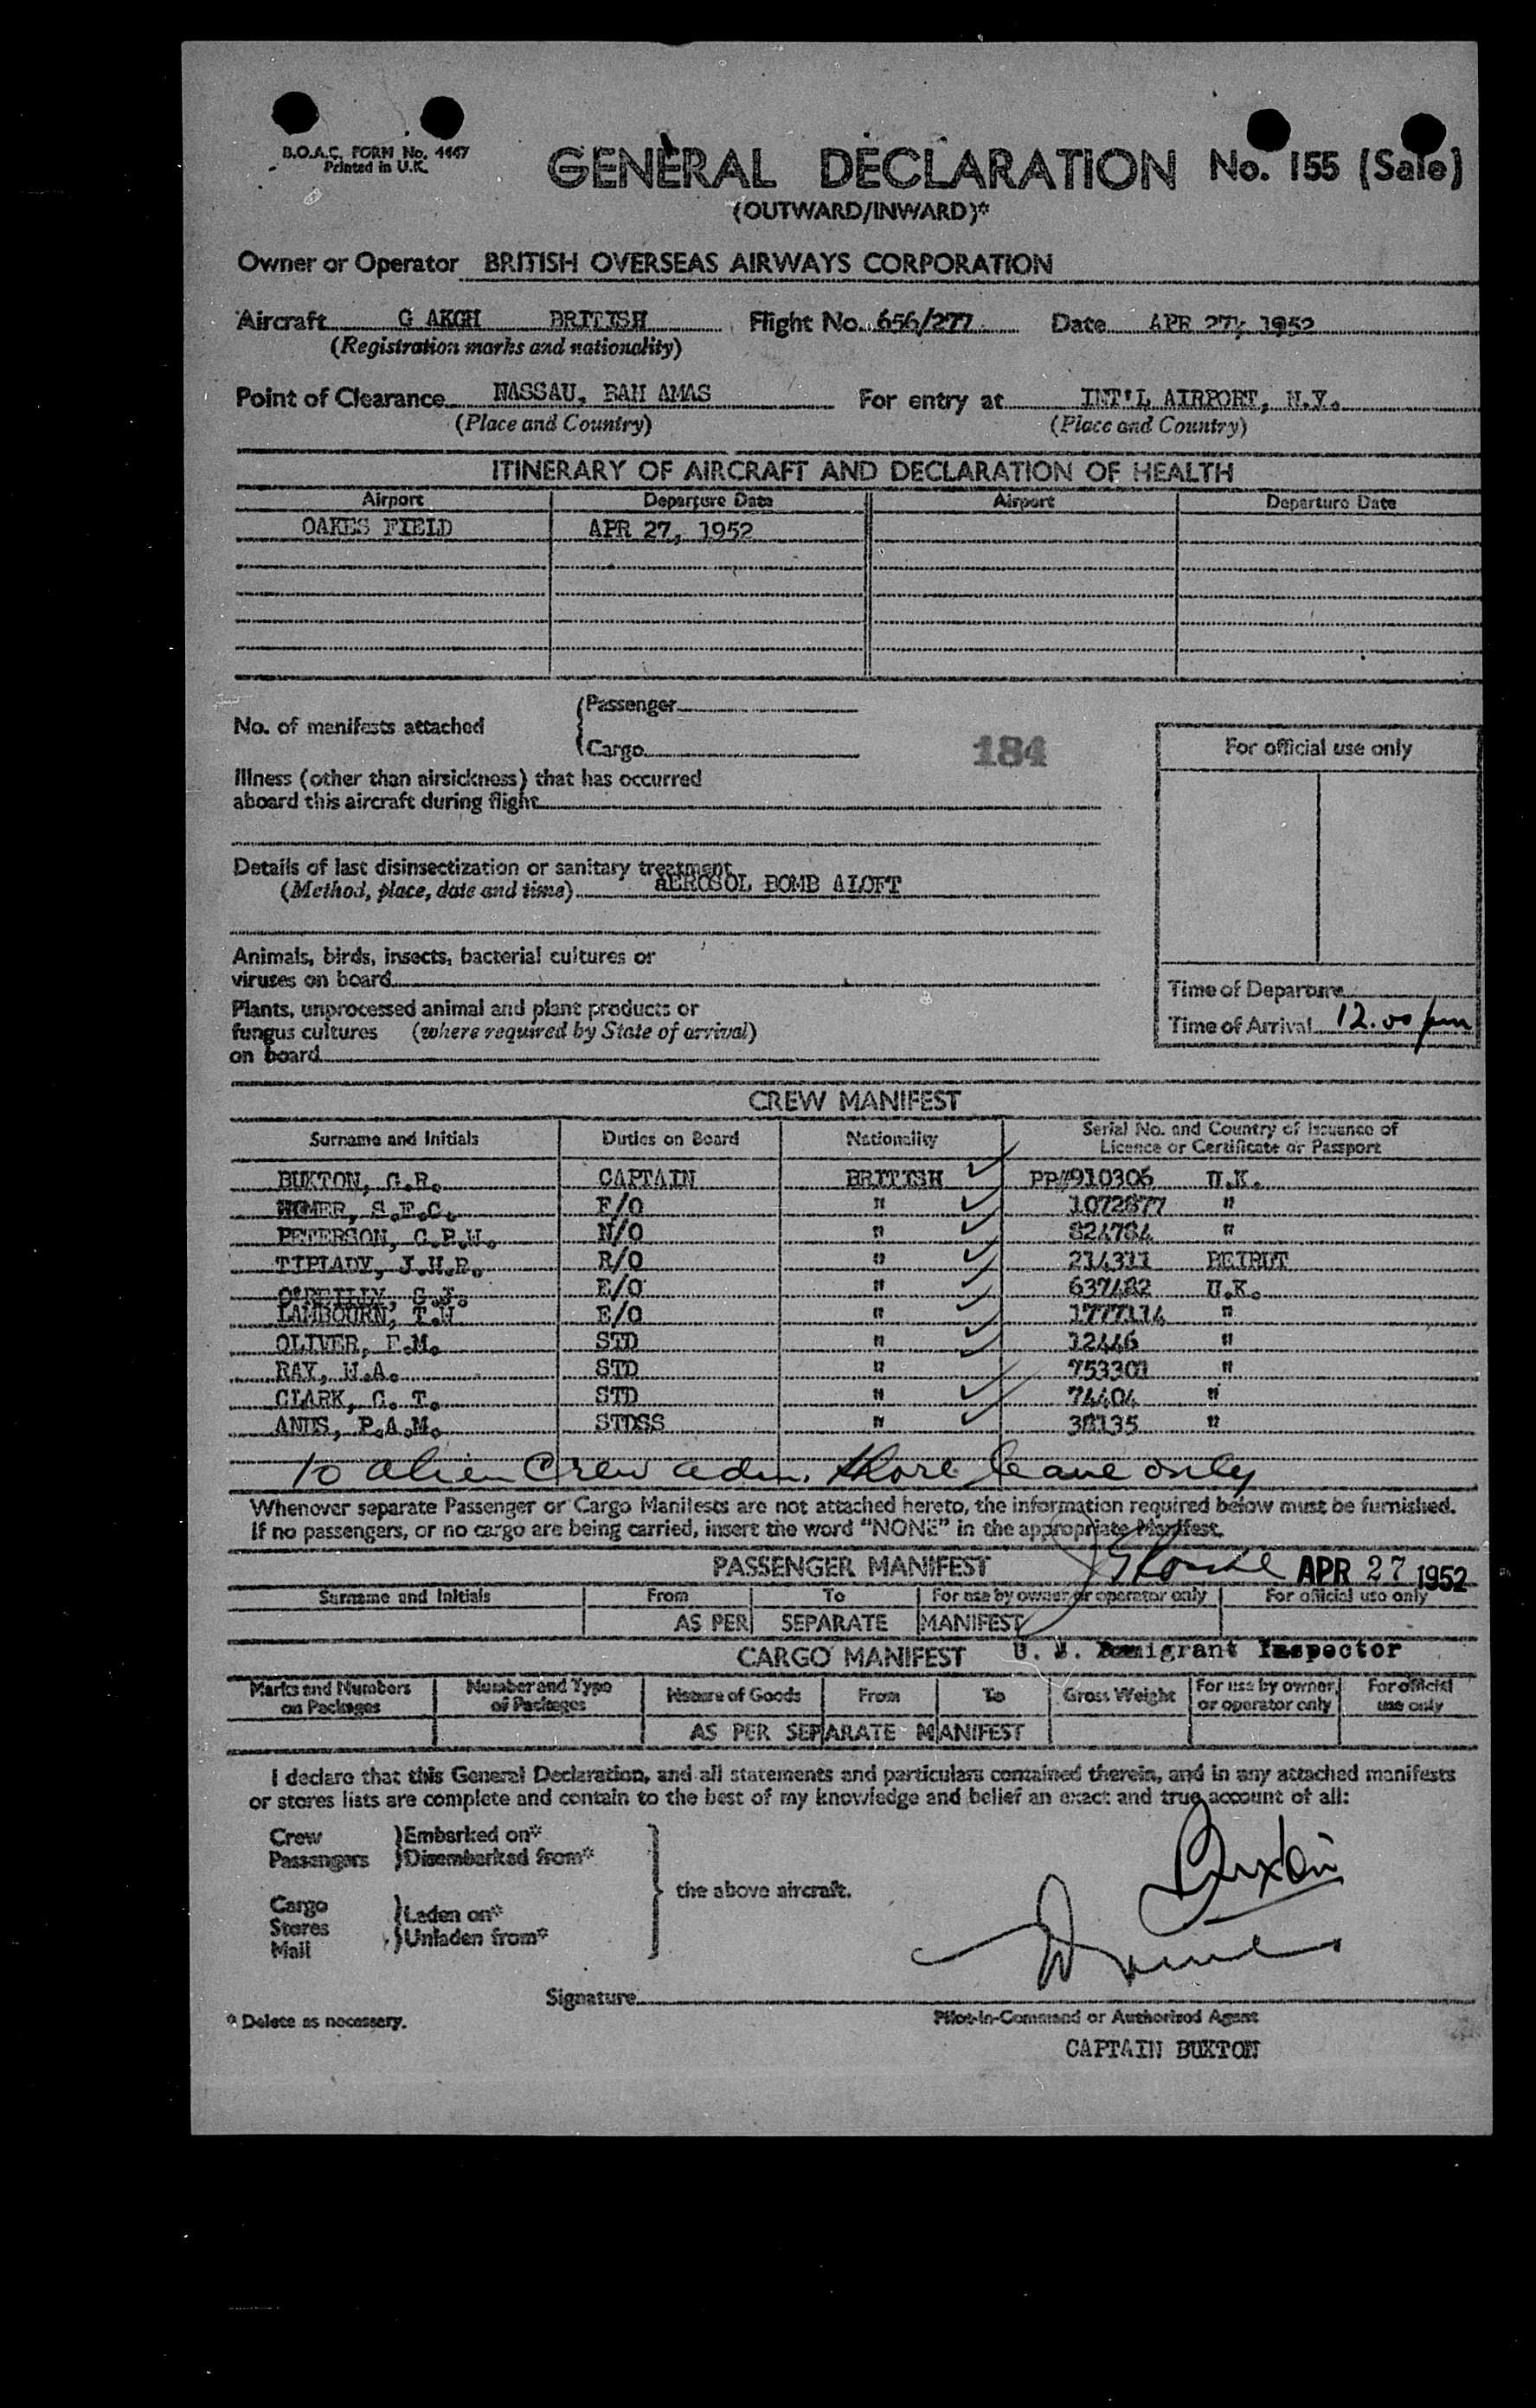 B.O.A.C. FORM No. 4447
Printed in U.K.
GENERAL DECLARATION No. 155 (Sale)
(OUTWARD/INWARD)*
Owner or Operator BRITISH OVERSEAS AIRWAYS CORPORATION
Aircraft G AKGH BRITISH Flight No. 656/277 Date APR 27, 1952
(Registration marks and nationality)
Point of Clearance NASSAU, BAH AMAS For entry at INT'L AIRPORT, N.Y.
(Place and Country) (Place and Country)
ITINERARY OF AIRCRAFT AND DECLARATION OF HEALTH
Airport Departure Date Airport Departure Date
OAKES FIELD APR 27, 1952
No. of manifests attached
Passenger
Cargo
184
For official use only
Illness (other than airsickness) that has occurred
aboard this aircraft during flight
Details of last disinsectization or sanitary treatment
(Method, place, date and time) aEROSOL BOMB ALOFT
Animals, birds, insects, bacterial cultures or
viruses on board
Plants, unprocessed animal and plant products or
fungus cultures (where required by State of arrival)
on board
Time of Departure
Time of Arrival 12.00 pm
CREW MANIFEST
Surname and Initials Duties on Board Nationality Serial No. and Country of Issuance of
Licence or Certificate or Passport
BUXTON, G.R. CAPTAIN BRITISH PP#910306 U.K.
HOMER, S.E.C. F/O " 1072877 "
PETERSON, C.P.W. N/O " 824784 "
TIPLADY, J.H.R. R/O " 214311 BEIRUT
O'REILLY, G.J. E/O " 637482 U.K.
LAMBOURN, T.W E/O " 1777114 "
OLIVER, F.M. STD " 12446 "
RAY, W.A. STD " 753301 "
CLARK, G. T. STD " 74404 "
P.A.M. STDSS " 38135 "
10 alien Crew adm. shore leave only
Whenever separate Passenger or Cargo Manifests are not attached hereto, the information required below must be furnished.
If no passengers, or no cargo are being carried, insert the word "NONE" in the appropriate Manifest.
PASSENGER MANIFEST APR 27 1952
Surname and Initials From To For use by owner or operator only For official use only
AS PER SEPARATE MANIFEST
CARGO MANIFEST U. S. Immigrant Inspector
Marks and Numbers
on Packages
Number and Type
of Packages
Nature of Goods From To Gross Weight
For use by owner
or operator only
For official
use only
AS PER SEPARATE MANIFEST
I declare that this General Declaration, and all statements and particulars contained therein, and in any attached manifests
or stores lists are complete and contain to the best of my knowledge and belief an exact and true account of all:
Crew
Passengers
Embarked on*
Disembarked from*
Cargo
Stores
Mail
Laden on*
Unladen from*
the above aircraft.
Buxton
Signature
* Delete as necessary.
Pilot-in-Command or Authorised Agent
CAPTAIN BUXTON